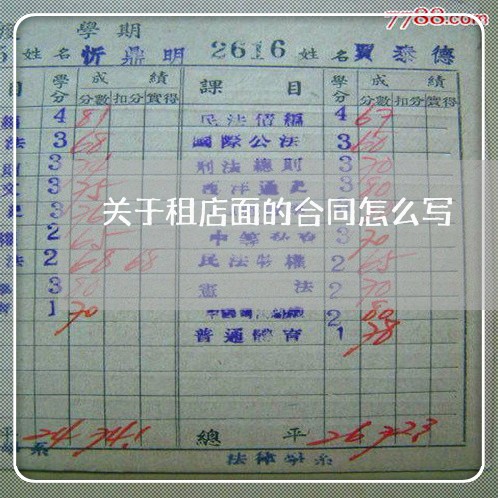 7788.com
學期
姓名 忻鼎明 2616 姓名 賈泰德
目 學分 成績 課目 學分 成績
分數 扣分 實得 分數 扣分 實得
4 81 民法債編 4 67
法 3 68 國際公法 3 60
3 刑法總則 3 70
文 3 75 西洋通史 3 80
关于租店面的合同怎么写
2 65 3 70
法 2 68 68 民法物權 2 65
3 80 憲法 2 70
育 1 70 2 80
普通體育 1 78
平 24 74.1 總平 26 72.3
系 法律學系